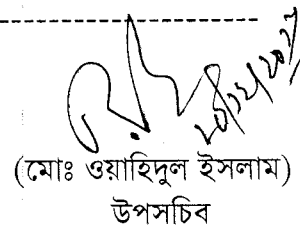 (মোঃ ওয়াহিদুল ইসলাম)
উপসচিব